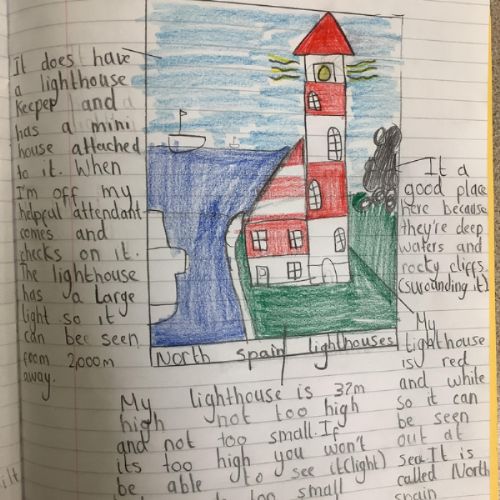 It does have
a lighthouse
Keeper and
has a mini
house attached
to it. When
I'm off my
helpful attendant
comes and
checks on it.
The lighthouse
has a large
light so it
can bee seen
from 2,000m
away.
It a
good place
here because
they're deep
waters and
rocky cliffs
(surounding it)
North Spain lighthouses
My lighthouse is 32m
high not too high
and not too small. If
its too high you won't
be able to see it (light)
too small
My
lighthouse
is red
and white
so it can
be seen
out at
sea. It is
called North
spain